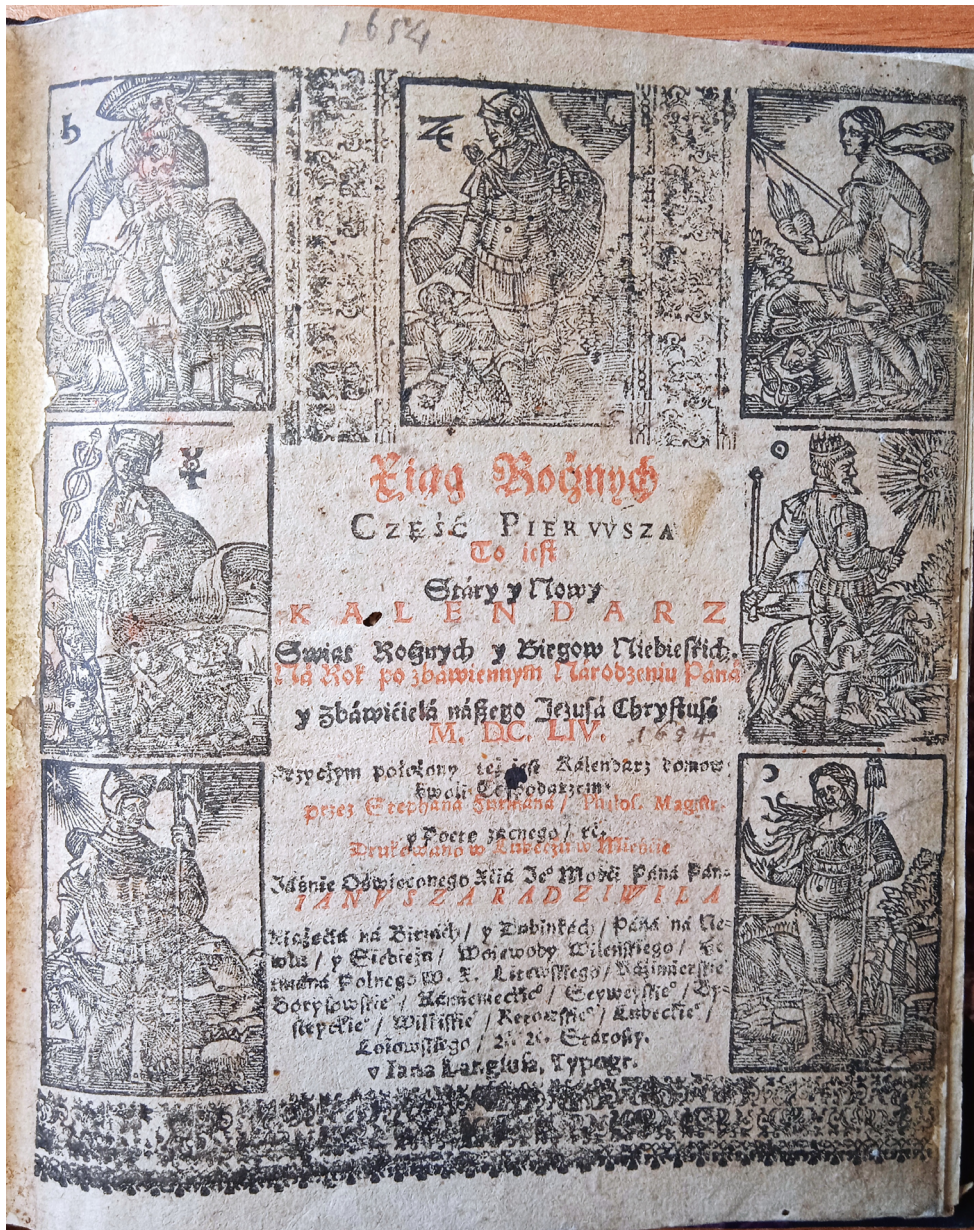 1654
Xiąg Rocżnych
CZĘŚĆ PIERVVSZA
To iest
Stáry y Nowy
KALENDARZ
Swiąt Rocżnych y Biegow Niebieskich.
Ná Rok po zbáwiennym Národzeniu Páná
y Zbáwićielá nászego Jezusá Chrystusá
M. DC. LIV.
1654
Przycżym położony też iest Kálendarz domow,
kwoli Gospodarzem.
przez Stephaná Furmana / Philos. Magistr.
y Poetę zacnego / rc.
Drukowano w Lubecżu w Mieśćie
Jáśnie Oświeconego Xcia Je° Mośći Páná Pán.
IANVSZA RADZIWILA
Xiążećiá ná Birżách / y Dubinkách / Páná ná Ne-
wlu / y Siebieżu / Woiewody Wileńskiego / He-
tmáná Polnego W. X. Litewskiego / Káźimierskie°
Borysowskie° / Kámienieckie° / Seyweyskie° / By-
stryckie° / / Lubeckie° /
Łoiowskiego / Stárosty.
v Iana Langiusa, Typogr.